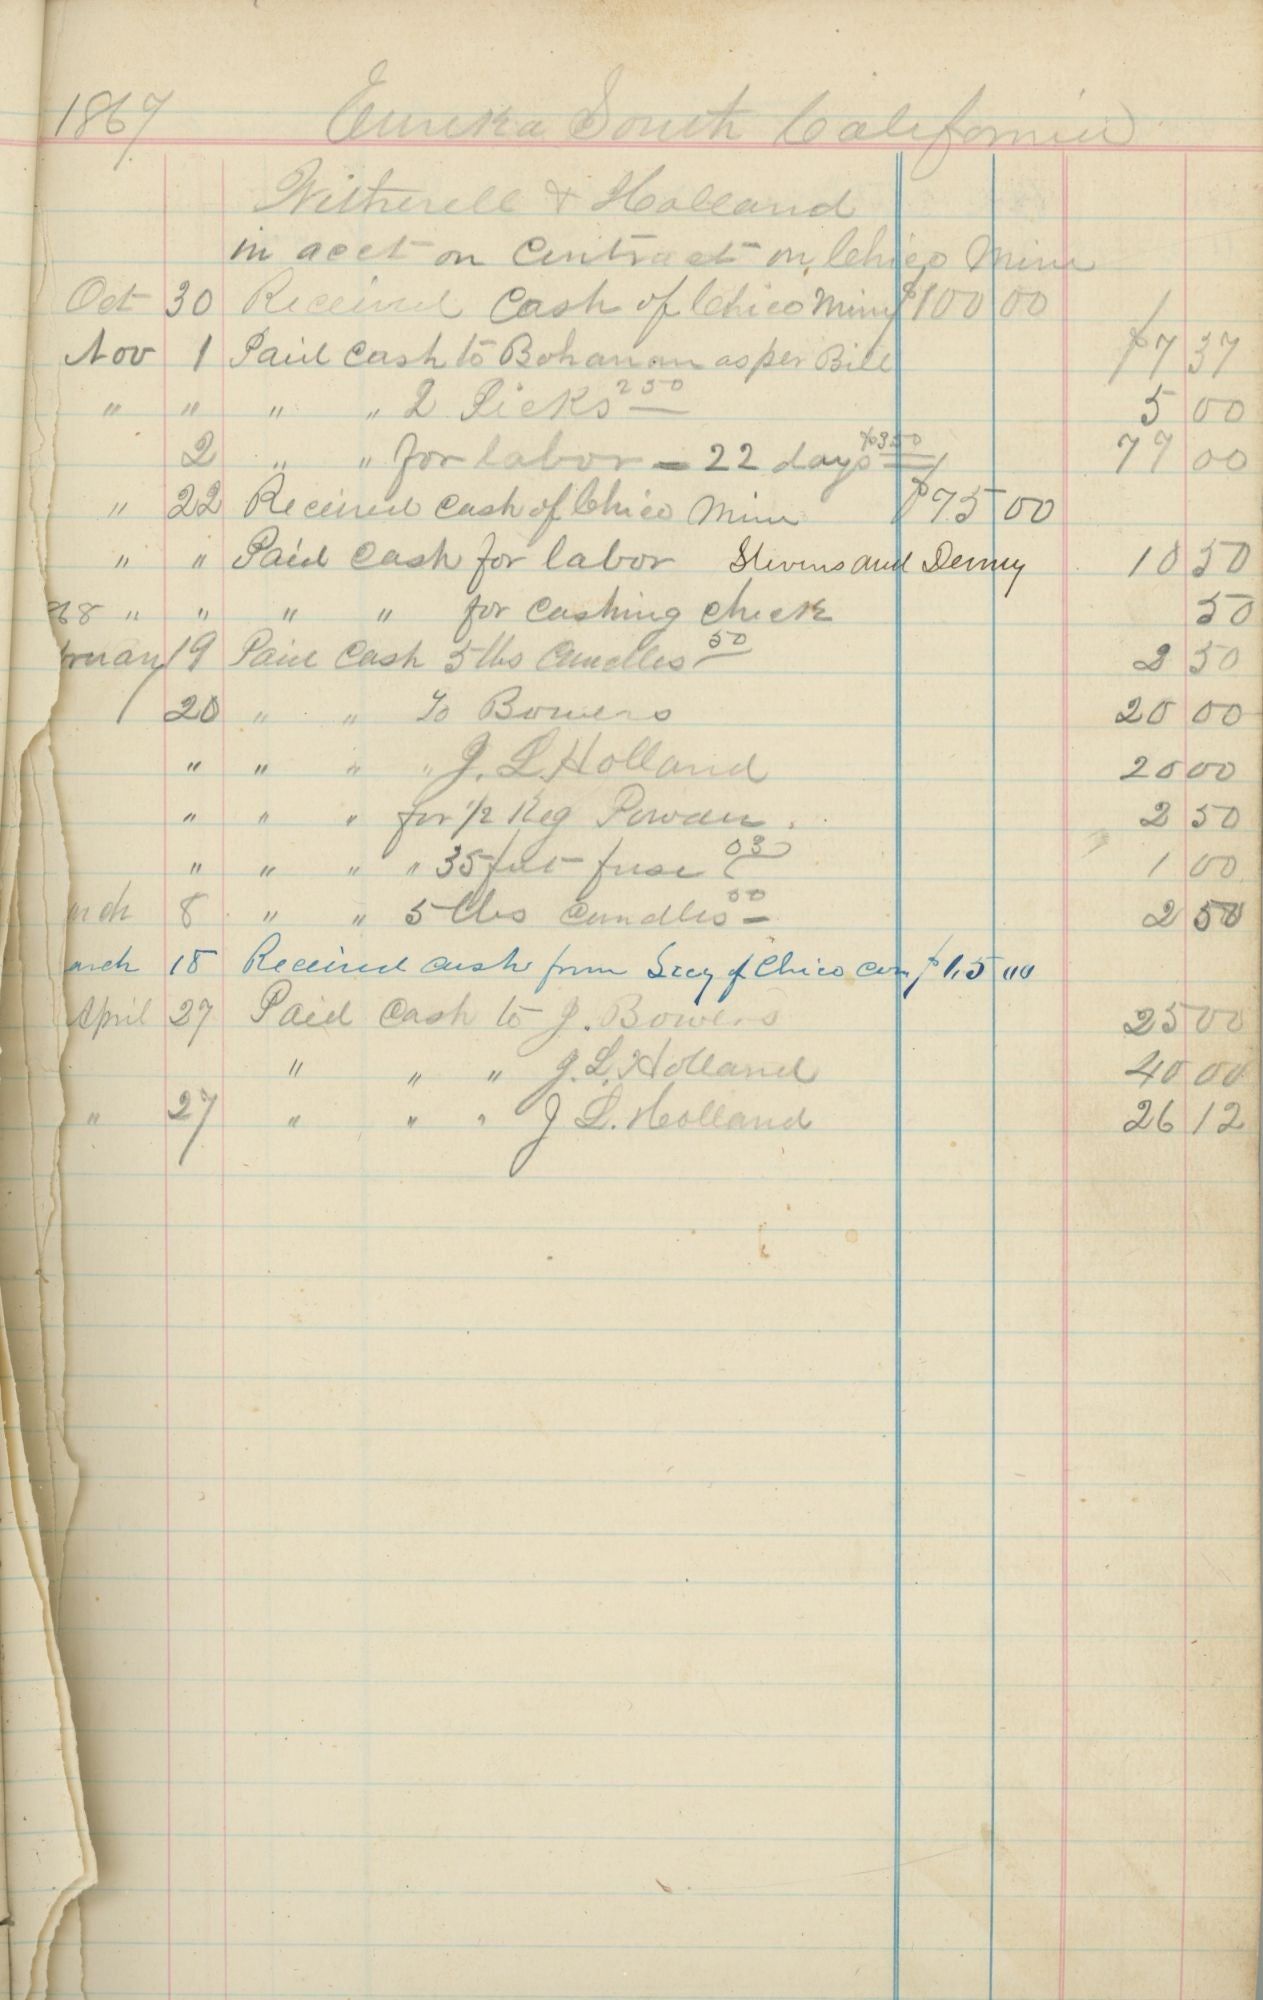 1867 Eureka South California
Witherell & Holland
in acct on Contract on Chico Mine
Oct 30 Received Cash of Chico Miny $100 00
Nov 1 Paid Cash to Bohanan as per Bill $7 37
" " " " 2 Picks 2 50 5 00
2 " " for labor - 22 days $3 50 77 00
" 22 Received Cash of Chico Mine $75 00
" " Paid Cash for labor Stevens and Denny 10 50
68 " " " " for Cashing Check 50
ruary 19 Paid Cash 5 lbs Candles 50 2 50
20 " " To Bowers 20 00
" " " " J. L. Holland 20 00
" " " for 1/2 Keg Powder 2 50
" " " " 35 feet fuse 03 1 00
arch 8 " " 5 lbs Candles 50 2 50
arch 18 Received cash from Secy of Chico com $ 15 00
April 27 Paid Cash to J. Bowers 25 00
" " " J. L. Holland 40 00
" 27 " " " J L. Holland 26 12